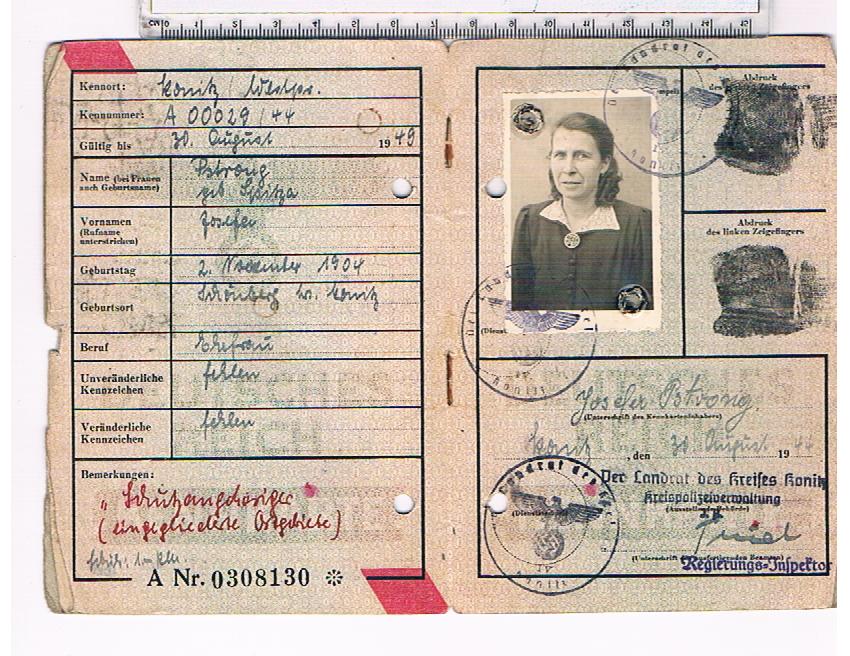 Kennort: Konitz / Westpr.
Kennummer: A 00029/44
Gültig bis 30. August 1949
Name (bei Frauen auch Geburtsname) Pstrong
geb. Spitza
Vornamen (Rufname unterstrichen)
Geburtstag 2. November 1904
Geburtsort Schönberg Kr. Konitz
Beruf Ehefrau
Unveränderliche Kennzeichen fehlen
Veränderliche Kennzeichen fehlen
Bemerkungen:
„Schutzangehöriger"
(eingegliederte Ostgebiete)
A Nr. 0308130
Abdruck
des rechten Zeigefingers
Abdruck
des linken Zeigefingers
Pstrong
(Unterschrift des Kennkarteninhabers)
Konitz, den 30. August 1944
Der Landrat des Kreises Konitz
Kreispolizeiverwaltung
(Ausstellende Behörde)
(Unterschrift des ausfertigenden Beamten)
Regierungs-Inspektor